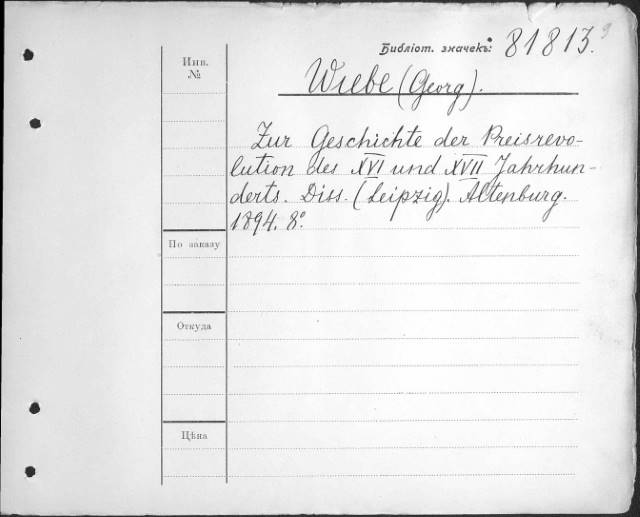 Библіот. значекъ: 81813.
Инв.
№
Wiebe (Georg).
Zur Geschichte der Preisrevo-
lution des XVI und XVII Jahrhun-
derts. Diss. (Leipzig). Altenburg.
1894. 8º.
По заказу
Откуда
Цѣна